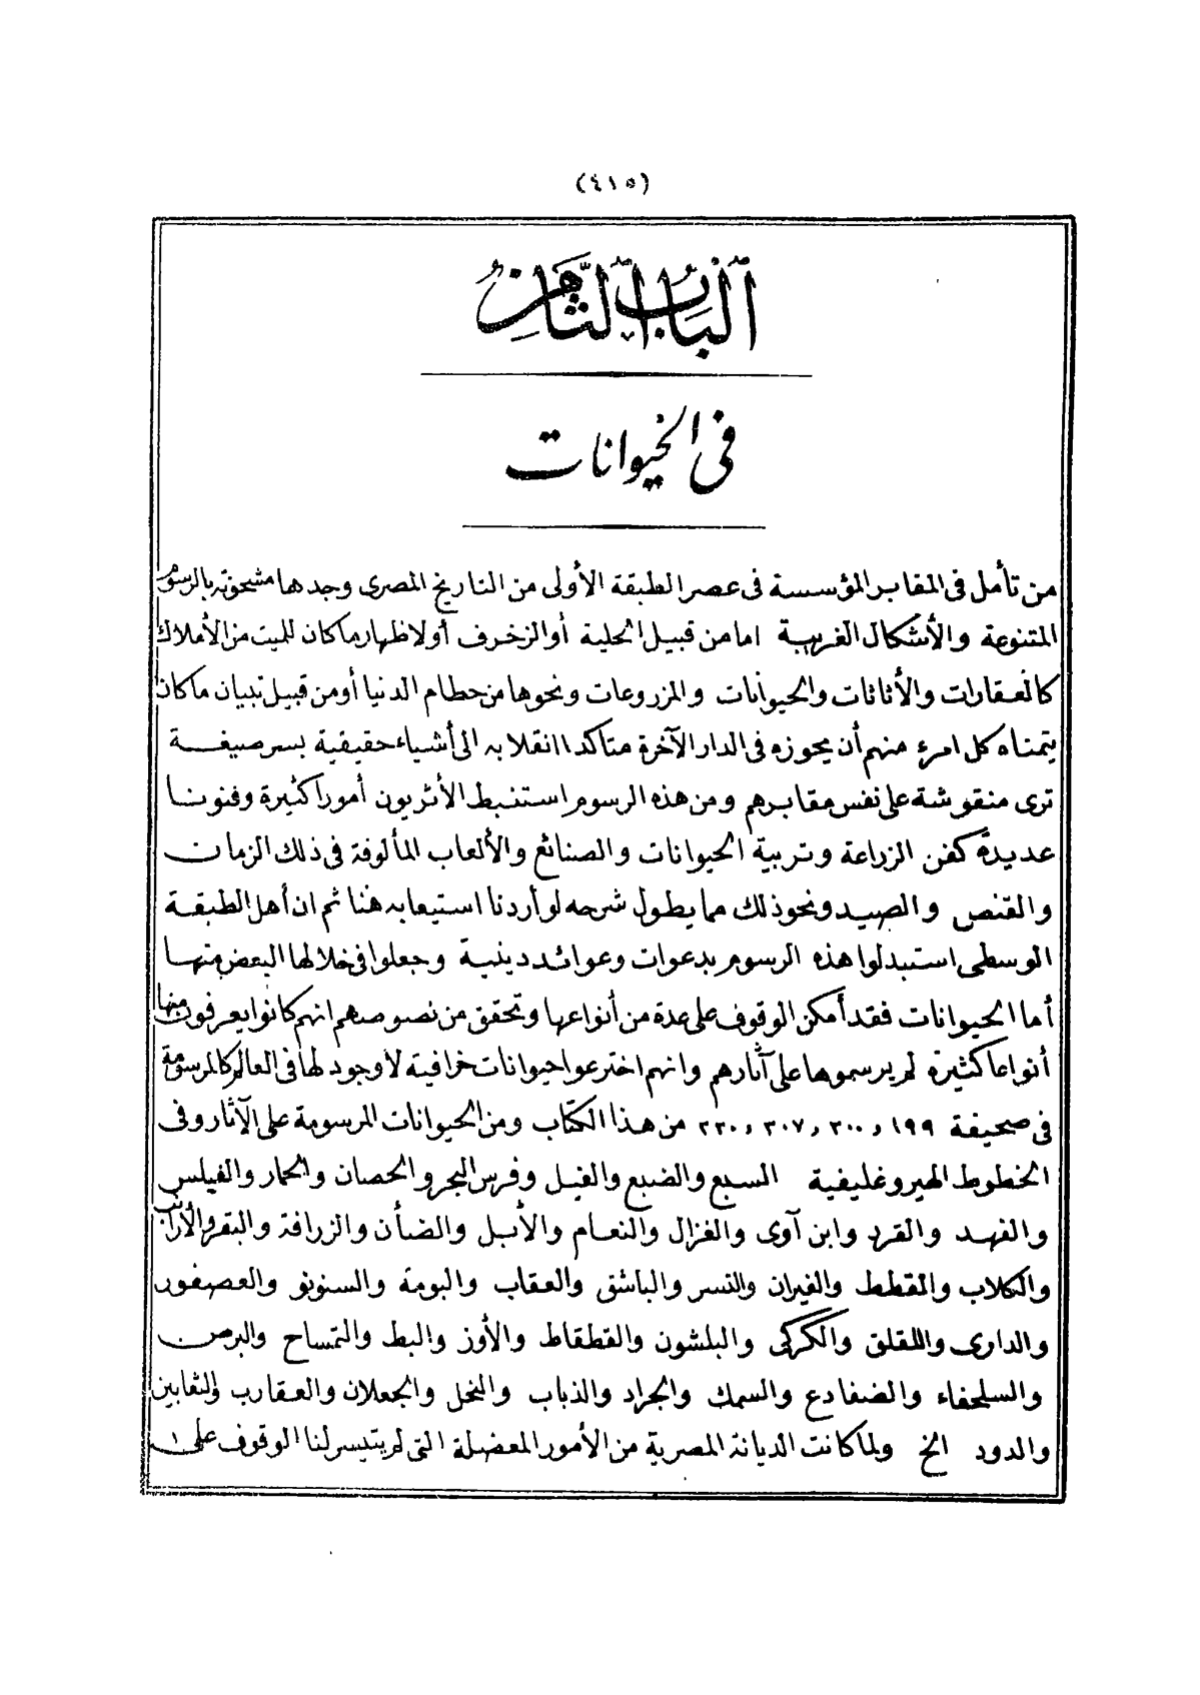 (٤١٥)
الباب الثامن
فى الحيوانات
من تأمل فى المقابر المؤسسة فى عصر الطبقة الأولى من التاريخ المصرى وجدها مشحونة بالرسوم
المتنوعة والأشكال الغريبة اما من قبيل الحلية أو الزخرف أو لاظهار ما كان للميت من الأملاك
كالعقارات والأثاثات والحيوانات والمزروعات ونحوها من حطام الدنيا أو من قبيل تبيان ما كان
يتمناه كل امرء منهم أن يحوزه فى الدار الآخرة متأكدا انقلابه الى أشياء حقيقية بسر صيغة
ترى منقوشة على نفس مقابرهم ومن هذه الرسوم استنبط الأثريون أمورا كثيرة وفنونا
عديدة كفن الزراعة وتربية الحيوانات والصنائع والألعاب المألوفة فى ذلك الزمان
والقنص والصيد ونحو ذلك مما يطول شرحه لو أردنا استيعابه هنا ثم ان أهل الطبقة
الوسطى استبدلوا هذه الرسوم بدعوات وعوائد دينية وجعلوا فى خلالها البعض منها
أما الحيوانات فقد أمكن الوقوف على عدة من أنواعها وتحقق من نصوصهم انهم كانوا يعرفون منها
أنواعا كثيرة لم يرسموها على آثارهم وانهم اخترعوا حيوانات خرافية لا وجود لها فى العالم كالمرسومة
فى صحيفة ١٩٩ ، ٣٠٠ ، ٣٠٧ ، ٢٢٠ من هذا الكتاب ومن الحيوانات المرسومة على الآثار وفى
الخطوط الهيروغليفية السبع والضبع والفيل وفرس البحر والحصان والحمار والفيلس
والفهد والقرد وابن آوى والغزال والنعام والأبل والضأن والزرافة والبقر والأرانب
والكلاب والقطط والفيران والنسر والباشق والعقاب والبومة والسنونو والعصفور
والدارى واللقلق والكركى والبلشون والقطقاط والأوز والبط والتمساح والبرص
والسلحفاء والضفادع والسمك والجراد والذباب والنحل والجعلان والعقارب والثعابين
والدود الخ ولما كانت الديانة المصرية من الأمور المعضلة التى لم يتيسر لنا الوقوف على